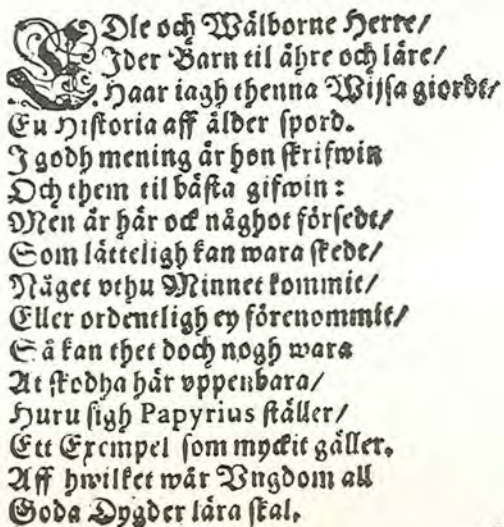 EDle och Wälborne Herre/
Jder Barn til ähre och läre/
Haar iagh thenna Wijsa giordt/
En Historia aff ålder spord.
J godh mening är hon skrifwin
Och them til bästa gifwin:
Men är här ock någhot försedt/
Som lätteligh kan wara skedt/
Någet vthu Minnet kommit/
Eller ordentligh ey förenommit/
Så kan thet doch nogh wara
At skodha här vppenbara/
Huru sigh Papyrius ställer/
Ett Exempel som myckit gäller.
Aff hwilket wår Vngdom all
Goda Dygder lära skal.